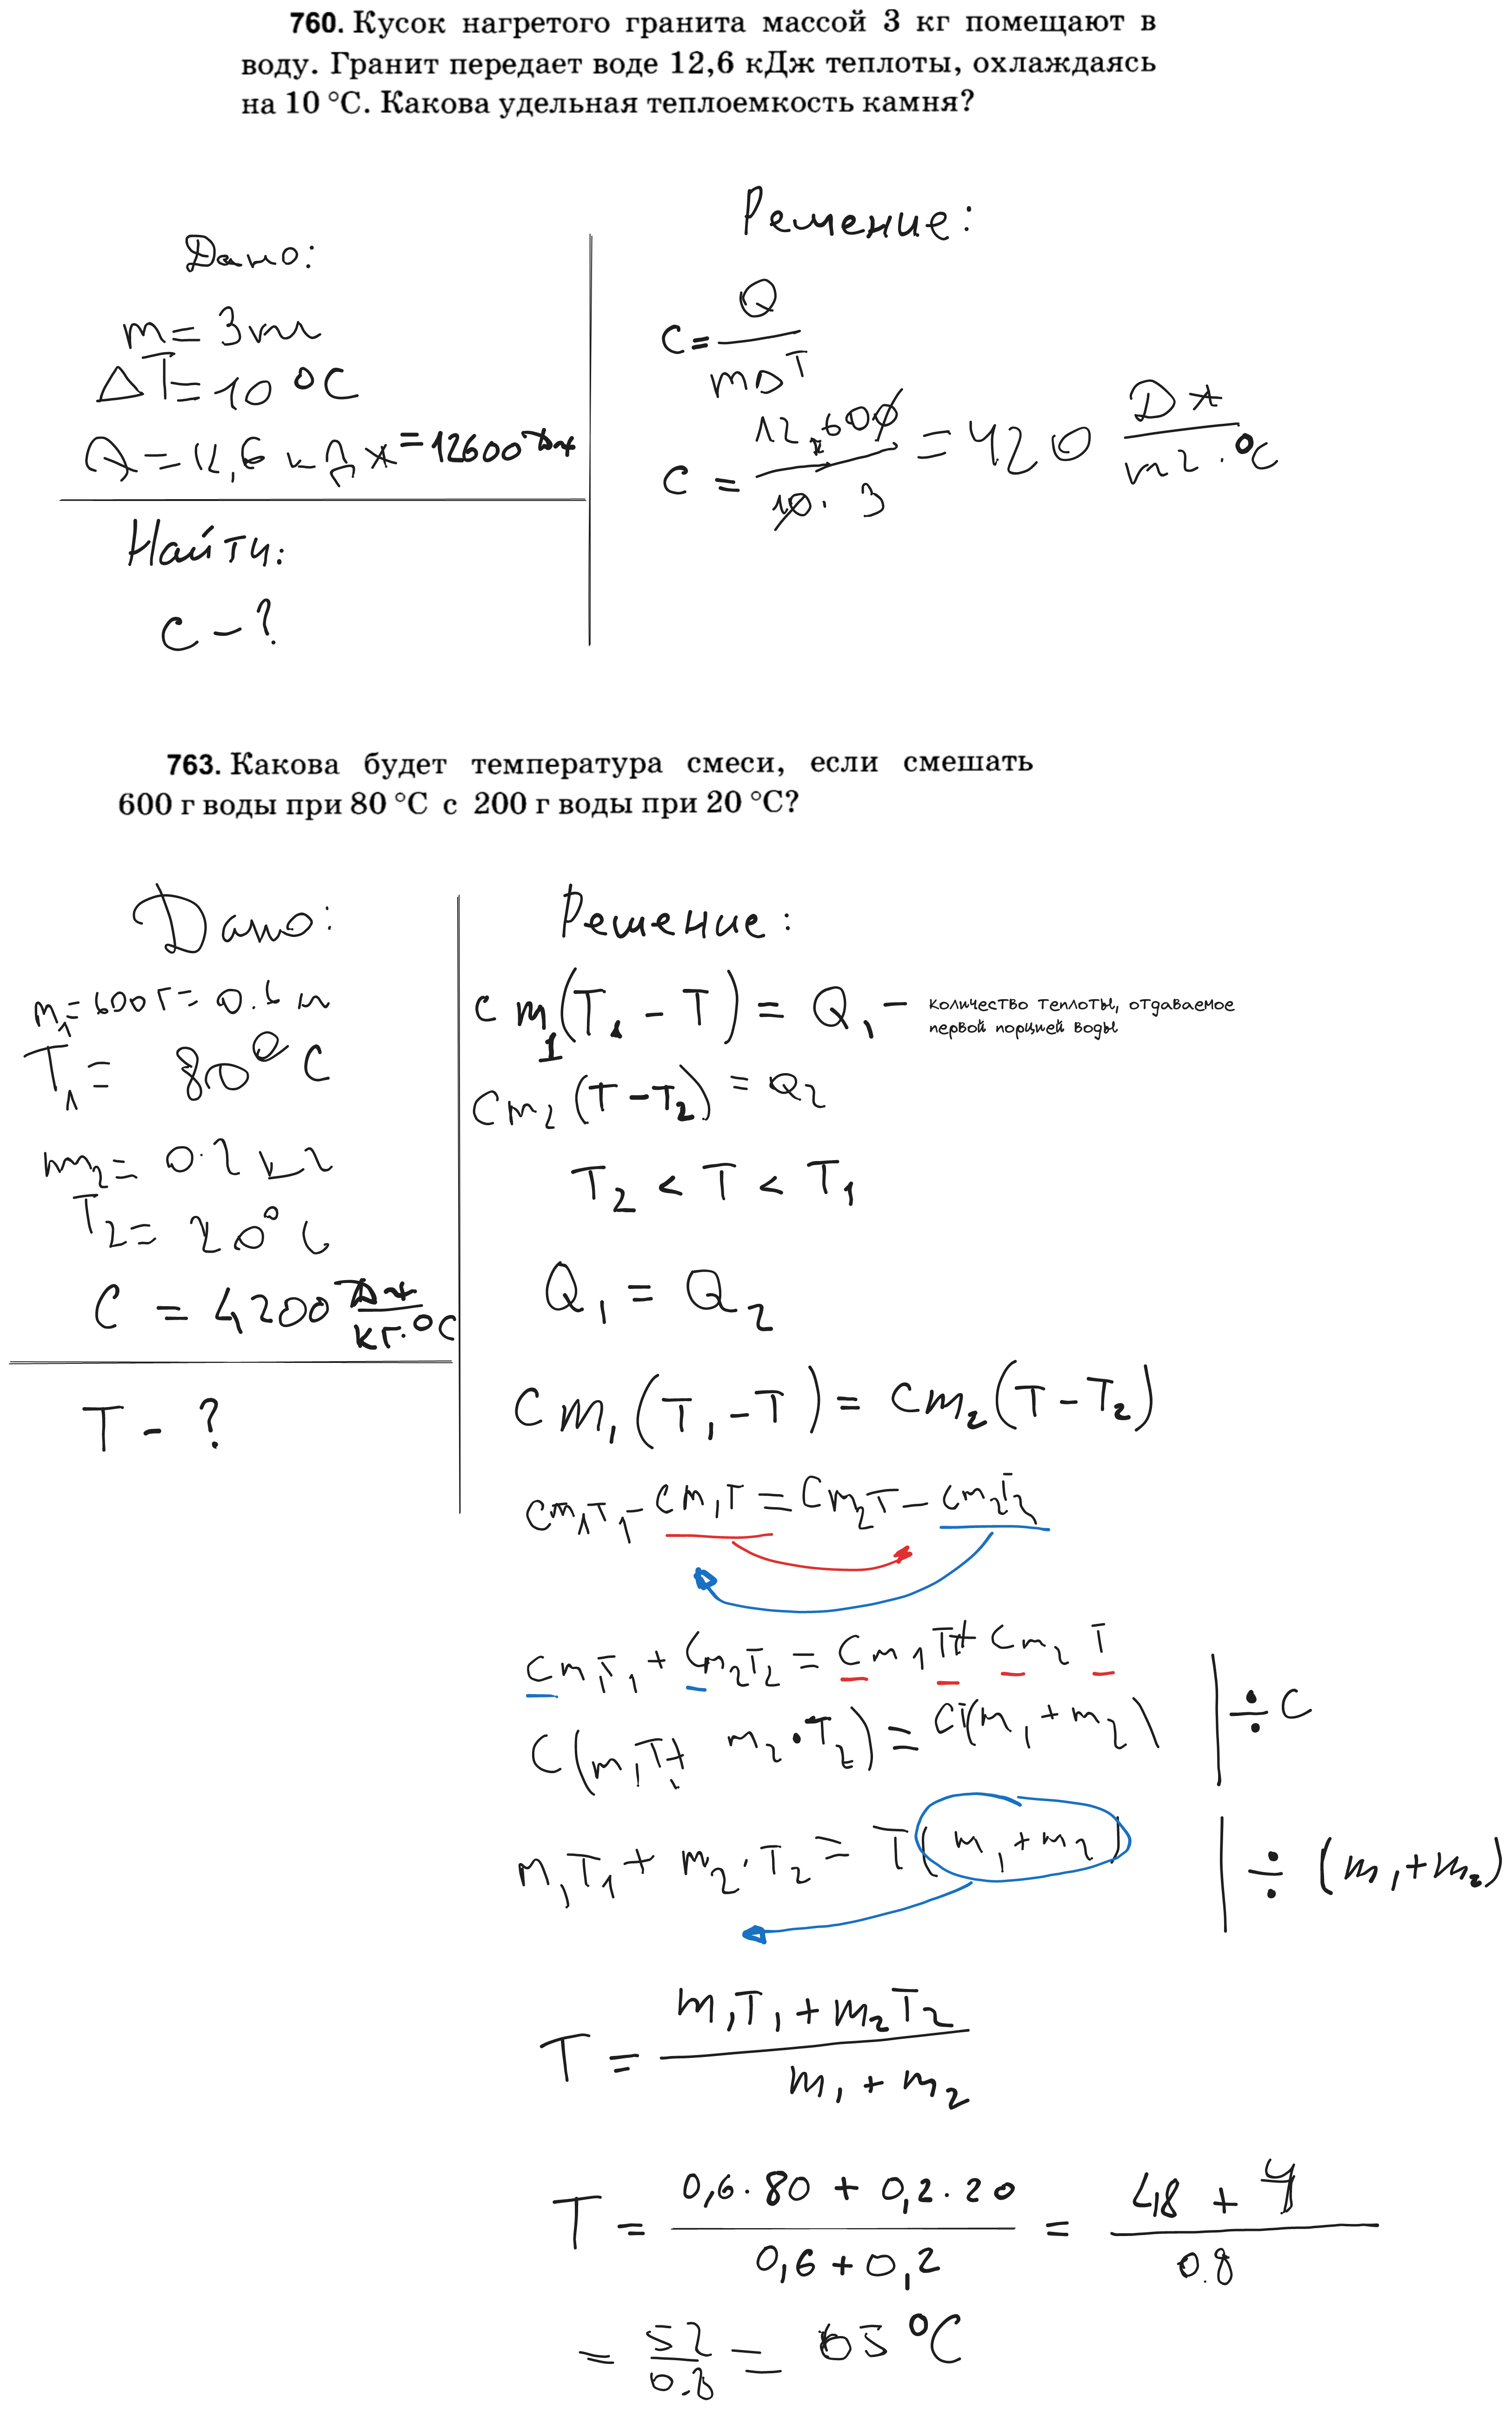 760. Кусок нагретого гранита массой 3 кг помещают в
воду. Гранит передает воде 12,6 кДж теплоты, охлаждаясь
на 10 °С. Какова удельная теплоемкость камня?
Дано:
m = 3 кг
ΔT = 10 °C
Q = 12,6 кДж = 12600 Дж
Найти:
c - ?
Решение:
c = Q / mΔT
c = 12600 / 10 · 3 = 420 Дж / кг · °C
763. Какова будет температура смеси, если смешать
600 г воды при 80 °С с 200 г воды при 20 °С?
Дано:
m₁ = 600 г = 0.6 кг
T₁ = 80° C
m₂ = 0.2 кг
T₂ = 20° C
C = 4200 Дж / кг · °C
T - ?
Решение:
c m₁ (T₁ - T) = Q₁ - количество теплоты, отдаваемое
первой порцией воды
cm₂ (T - T₂) = Q₂
T₂ < T < T₁
Q₁ = Q₂
cm₁ (T₁ - T) = cm₂ (T - T₂)
cm₁T₁ - cm₁T = cm₂T - cm₂T₂
cm₁T₁ + cm₂T₂ = cm₁T + cm₂T
C(m₁T₁ + m₂ · T₂) = CT(m₁ + m₂) | ÷ C
m₁T₁ + m₂ · T₂ = T(m₁ + m₂) | ÷ (m₁ + m₂)
T = m₁T₁ + m₂T₂ / m₁ + m₂
T = 0,6 · 80 + 0,2 · 20 / 0,6 + 0,2 = 48 + 4 / 0.8
= 52 / 0.8 = 65 °C